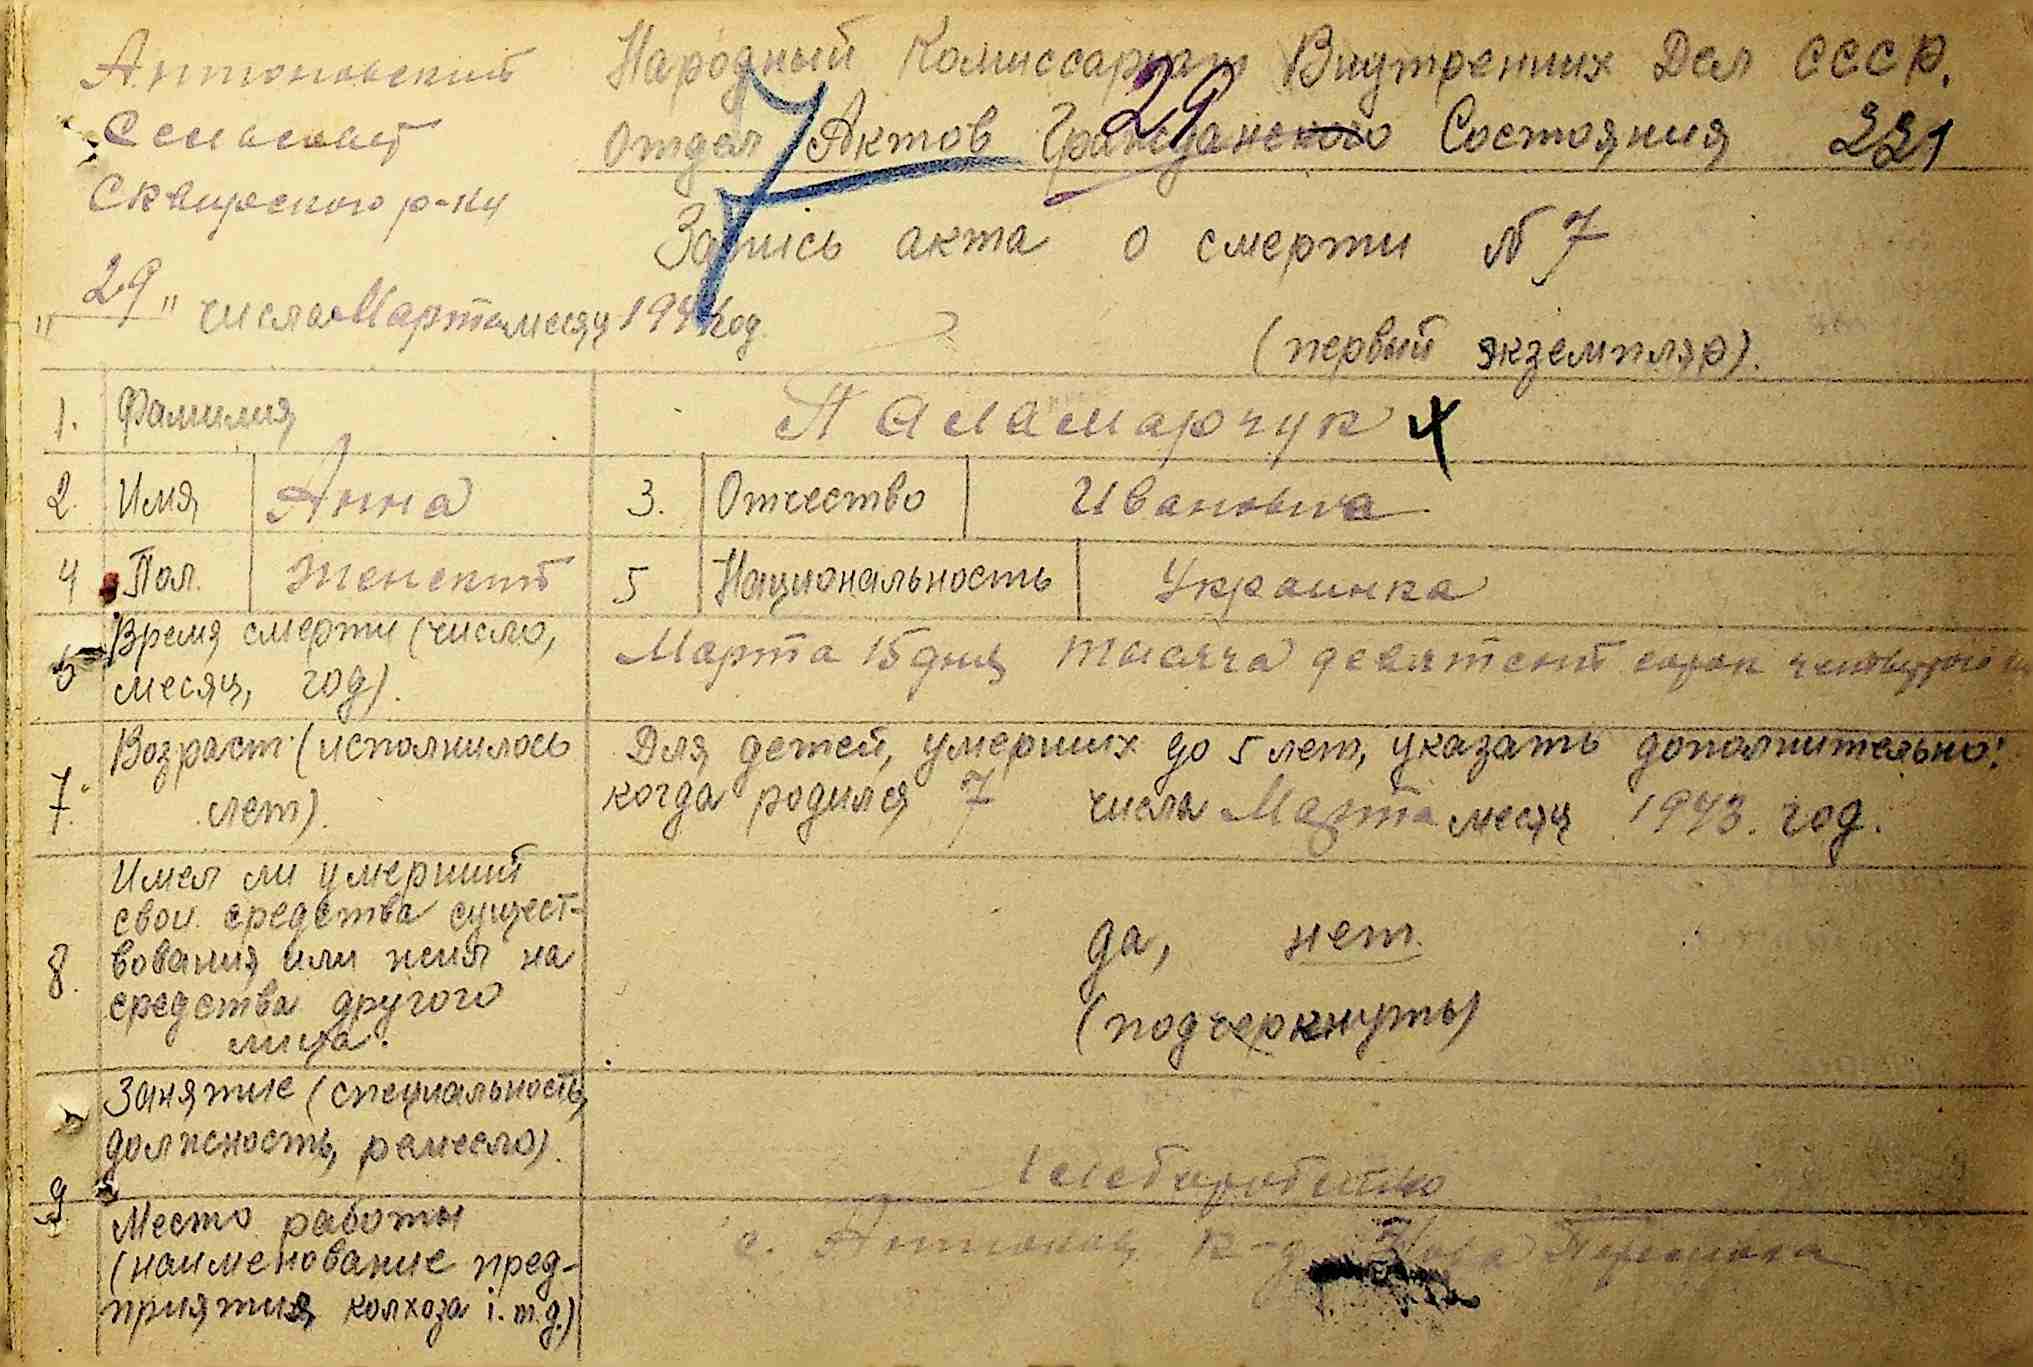 Антоновский
Сельсовет
Сквирского р-ну
"29" числа Марта месяц 1944 год.
Народный Комиссариат Внутренних Дел СССР.
Отдел Актов Гражданского Состояния
7
29
221
Запись акта о смерти № 7
(первый экземпляр).
1. Фамилия Паламарчук
2. Имя Анна 3. Отчество Ивановна
4 Пол. Женский 5 Национальность Украинка
5 Время смерти (число,
месяц, год).
Марта 15 дня тысяча девятсот сорок четвертого
7. Возраст (исполнилось
лет).
Для детей, умерших до 5 лет, указать дополнительно:
когда родился 7 числа Марта месяц 1943. год.
8. Имел ли умерший
свои средства сущест-
вования или жил на
средства другого
лица.
да, нет
(подчеркнуть)
9 Занятие (специальность,
должность, ремесло).
Место работы
(наименование пред-
приятия, колхоза і.т.д.)
с. Антонов к-д